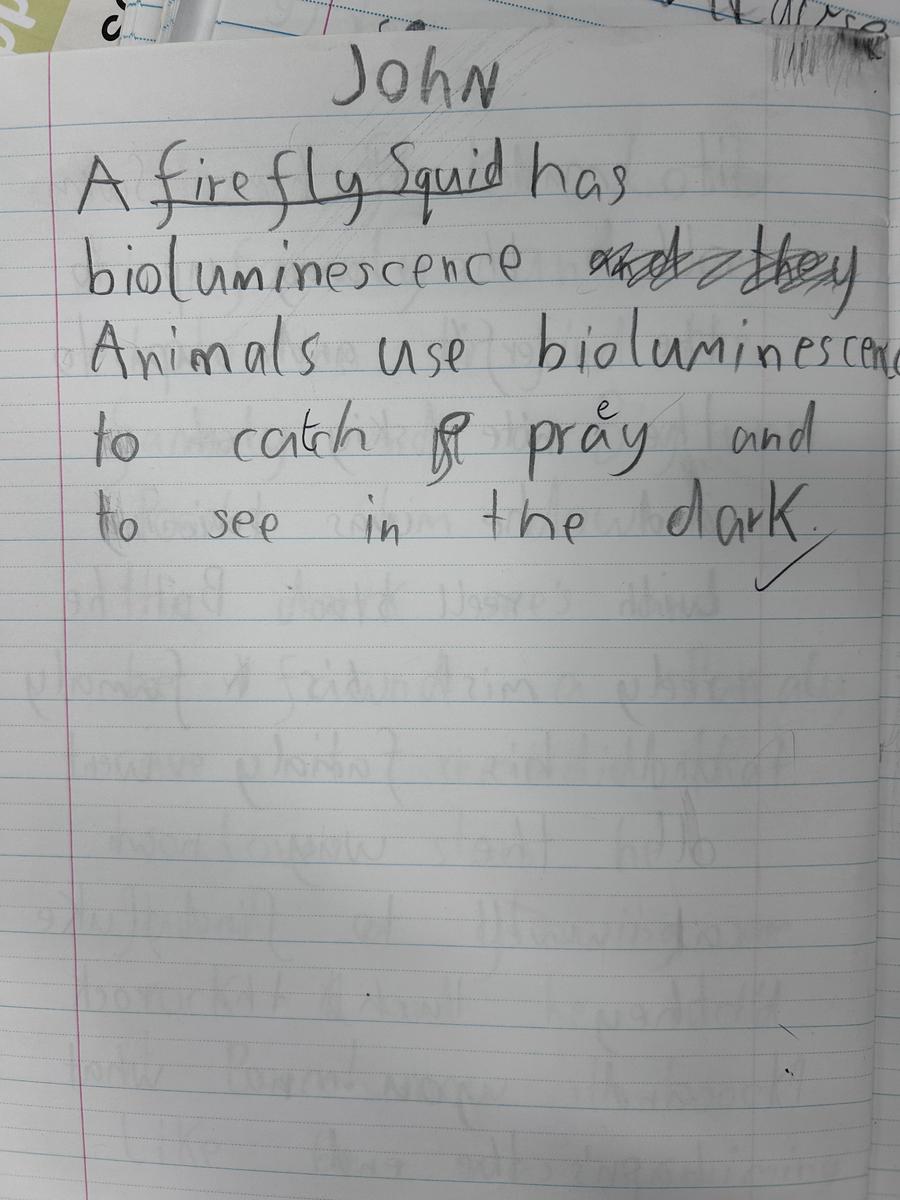 JOHN
A firefly Squid has
bioluminescence and they
Animals use bioluminescenc
to catch prey and
to see in the dark.